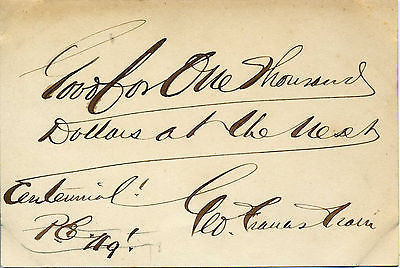 Good for One Thousand
Dollars at the Next
Centennial!
Geo. Francis Train